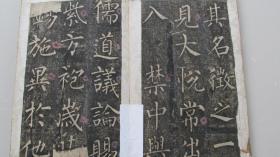 其名徵之一
見大悅常出
入禁中與
儒道議論賜
紫方袍歲
施異於他